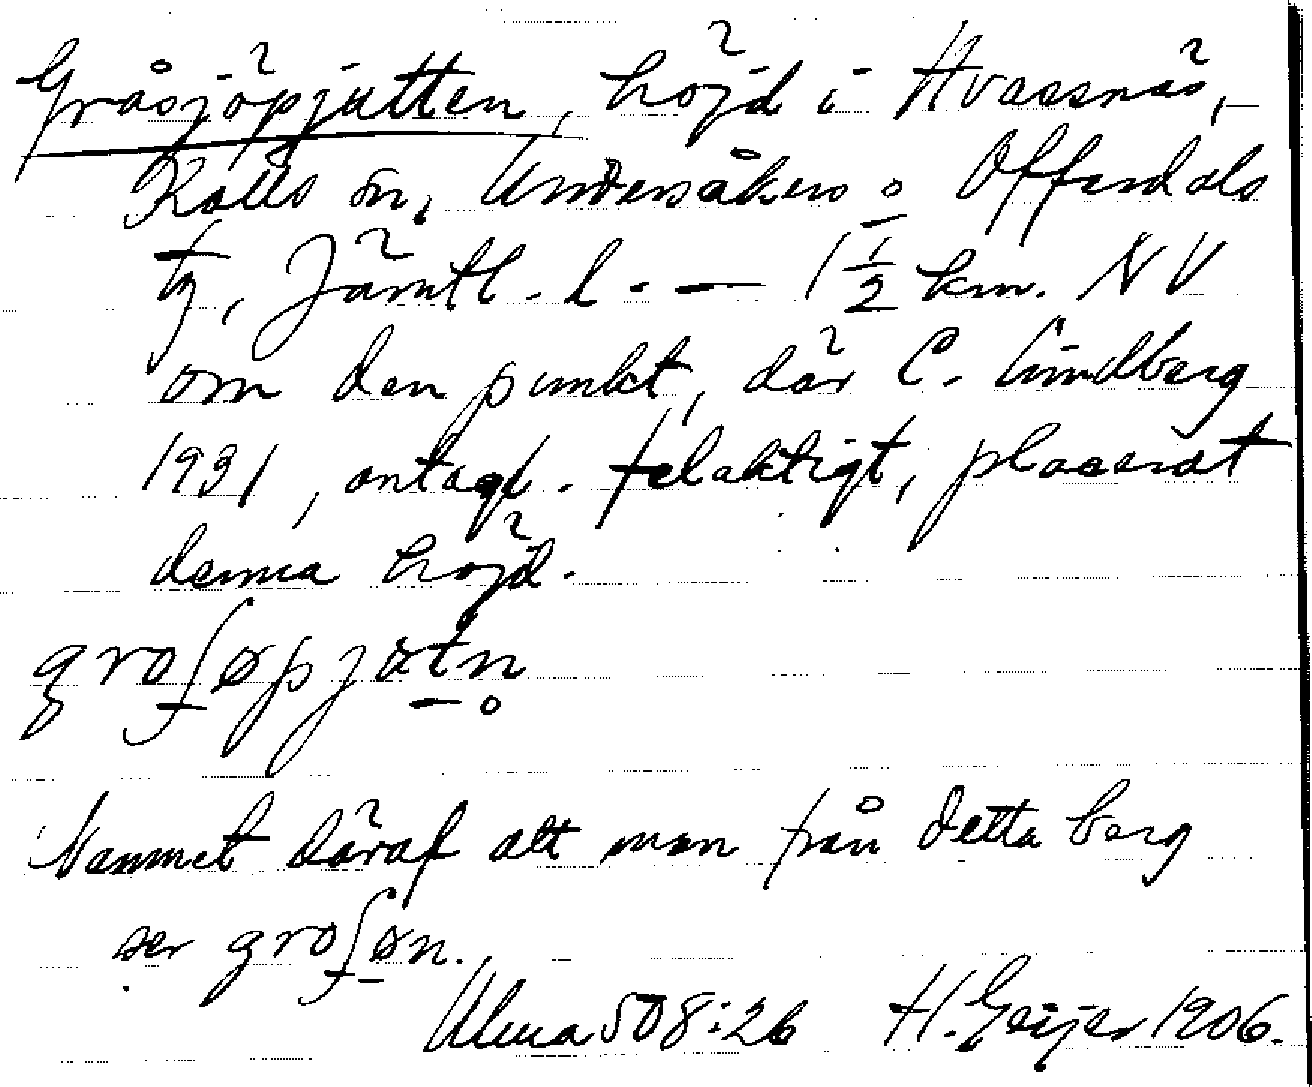 Gråsjöpjätten, höjd i Hvassnäs,
Kalls sn, Undersåkers o Offerdals
tg, Jämtl. l. — 1 1/2 km. NV
om den punkt, där C. Lindberg
1931, antagl. felaktigt, placerat
denna höjd.
groʃøpjätn̥
Namnet däraf att man från detta berg
ser groʃøn.
Ulma 508:26 H. Geijer 1906.